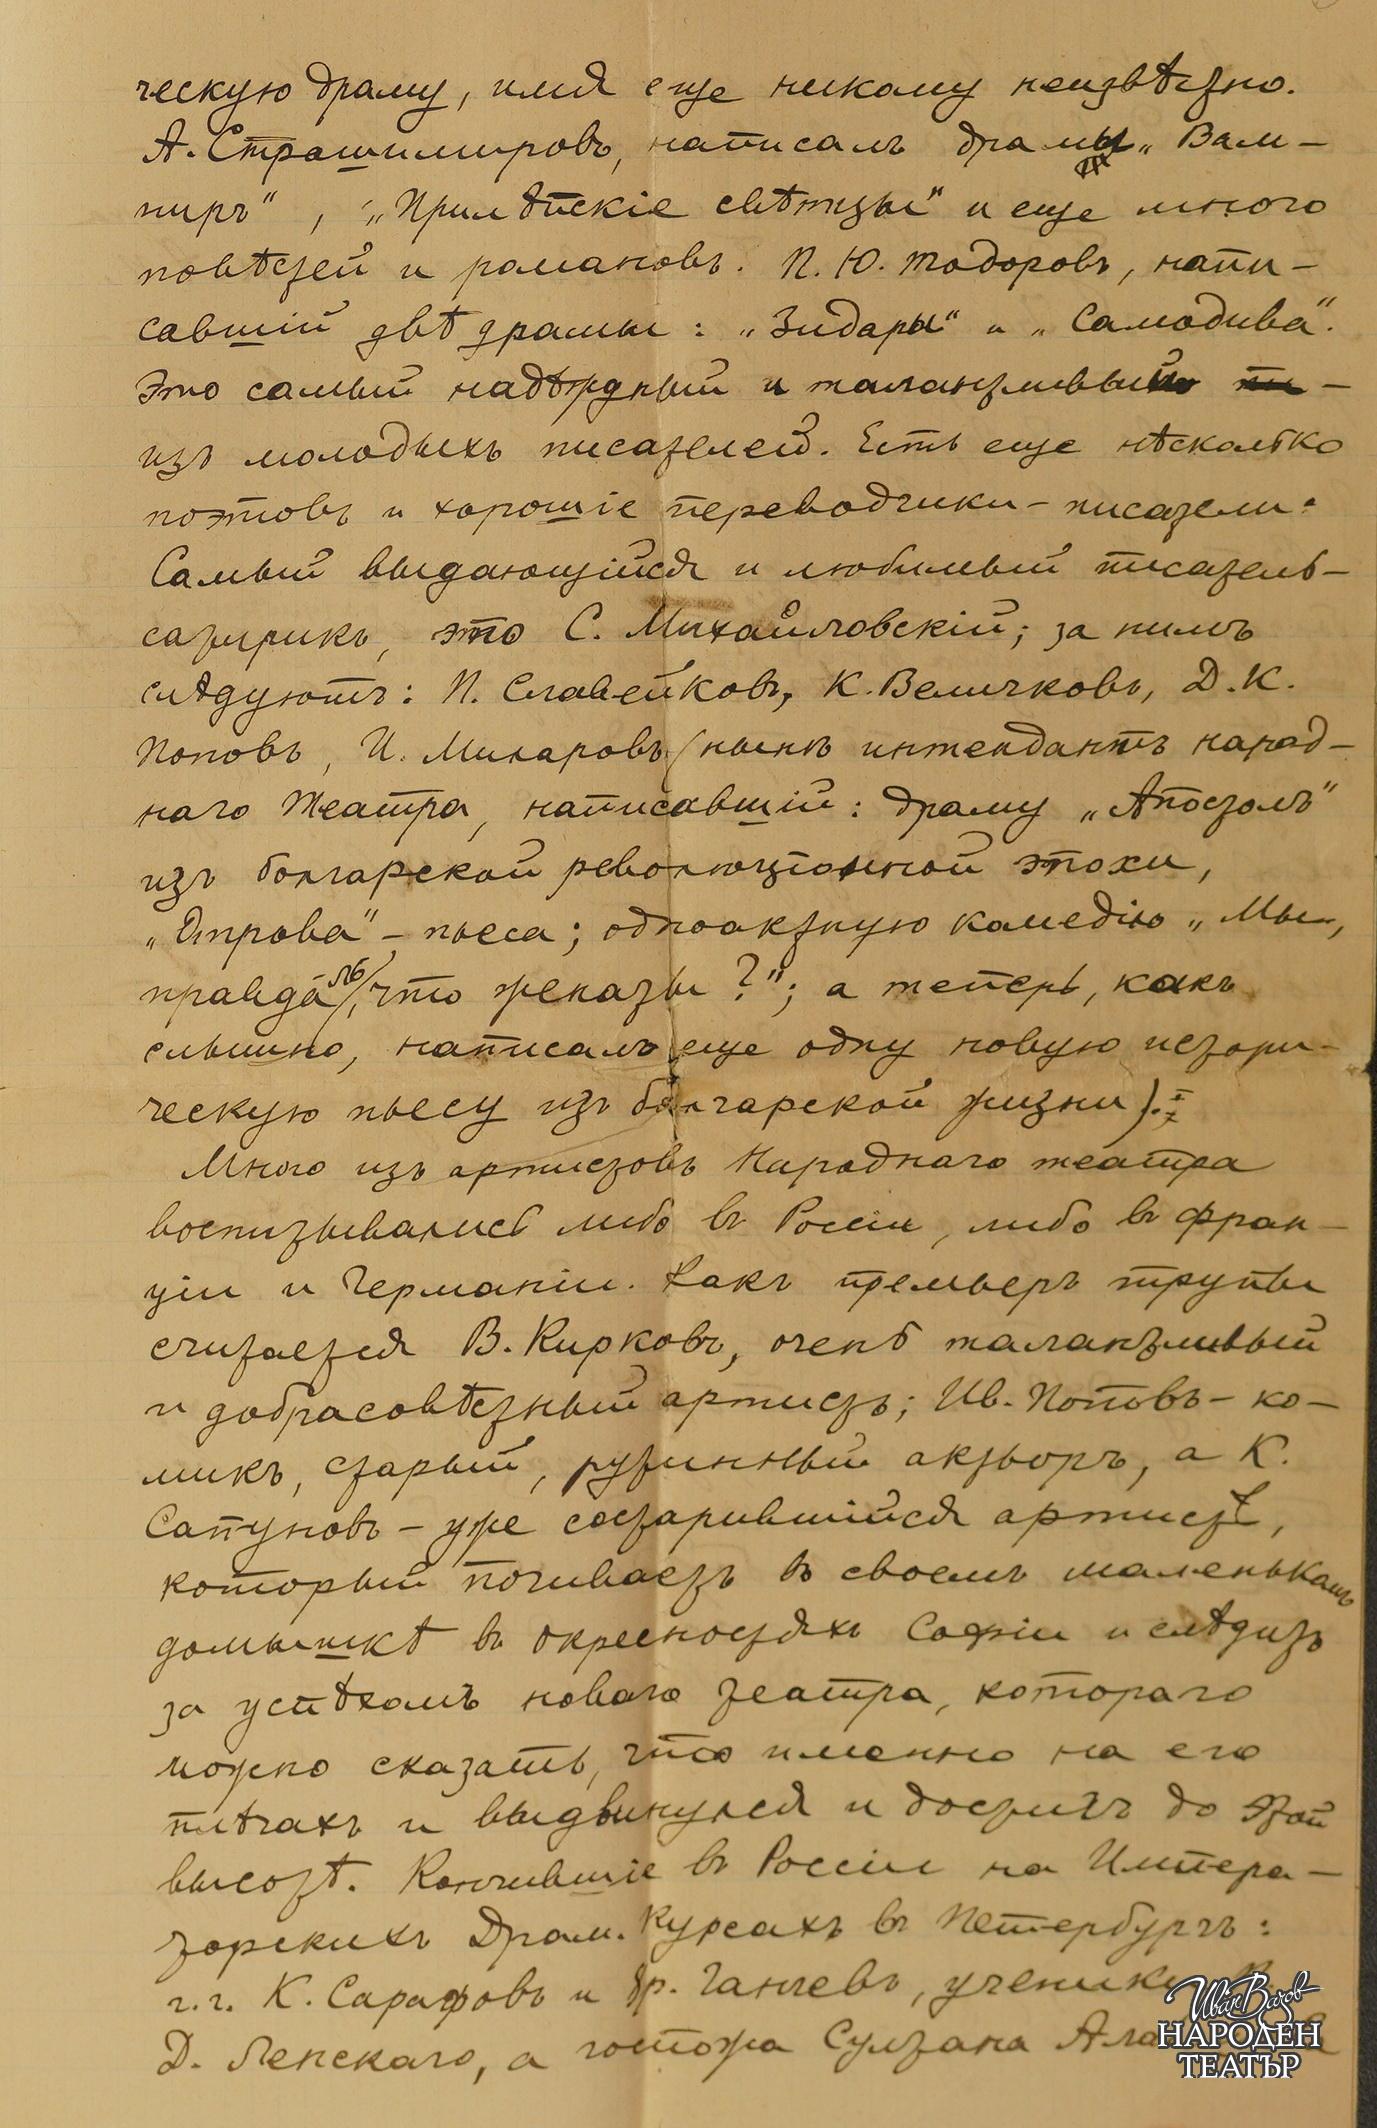 ческую драму, имя еще никому неизвѣстно.
А. Страшимировъ, написалъ драмы „Вам-
пиръ“, „Прилѣпскіе свѣтцы“ и еще много
повѣстей и романовъ. П. Ю. Тодоровъ, напи-
савшій двѣ драмы: „Зидары“ и „Самодива“.
Это самый надѣждный и талантливый -
изъ молодыхъ писателей. Есть еще нѣсколько
поэтовъ и хорошіе переводчики-писатели.
Самый выдающійися и любимый писатель-
сатирикъ, это С. Михайловскій; за нимъ
слѣдуютъ: П. Славейковъ, К. Величковъ, Д. К.
Поповъ, И. Миларовъ (нынѣ интендантъ народ-
наго Театра, написавшій: драму „Апостолъ“
изъ болгарской революціонной эпохи,
„Отрова“ - пьеса; одноактную комедію „Мы,
правда ль, что женаты?“; а теперь, какъ
слышно, написалъ еще одну новую истори-
ческую пьесу изъ болгарской жизни).
Много изъ артистовъ Народнаго театра
воспитывались либо въ Россіи, либо въ Фран-
ціи и Германіи. Какъ премьеръ труппы
считается В. Кирковъ, очень талантливый
и добрасовѣстный артистъ; Ив. Поповъ - ко-
микъ, старый, рутинный актьоръ, а К.
Сапуновъ - уже состарившійся артистъ,
который почиваетъ въ своемъ маленькомъ
домышкѣ въ окресностяхъ Софіи и слѣдитъ
за успѣхомъ новаго театра, котораго
можно сказать, что именно на его
плѣчахъ и выдвинулся и достигъ до этой
высотѣ. Кончившіе въ Россіи на Импера-
торскихъ Драм. Курсахъ въ Петербургъ:
г.г. К. Сарафовъ и Хр. Ганчевъ, ученики
Д. Ленскаго, а госпожа Султана
Иван Вазов
НАРОДЕН
ТЕАТЪР